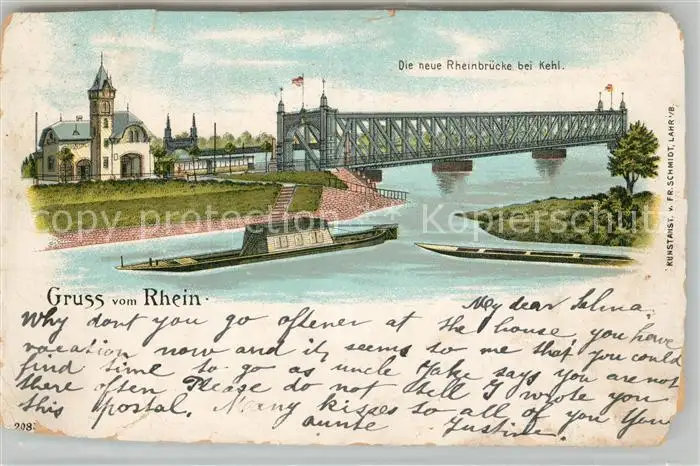 Die neue Rheinbrücke bei Kehl.
KUNSTANST. v. FR. SCHMIDT, LAHR i/B.
copy protection by Ansichtskarten-Schuster
Gruss vom Rhein.
My dear Selma.
Why dont you go oftener at the house, you have
vacation now and it, seems to me that you could
find time to go as uncle Jake says you are not
there often Please do not tell I wrote you
this postal. Many kisses to all of you Your
aunte Justine.
208